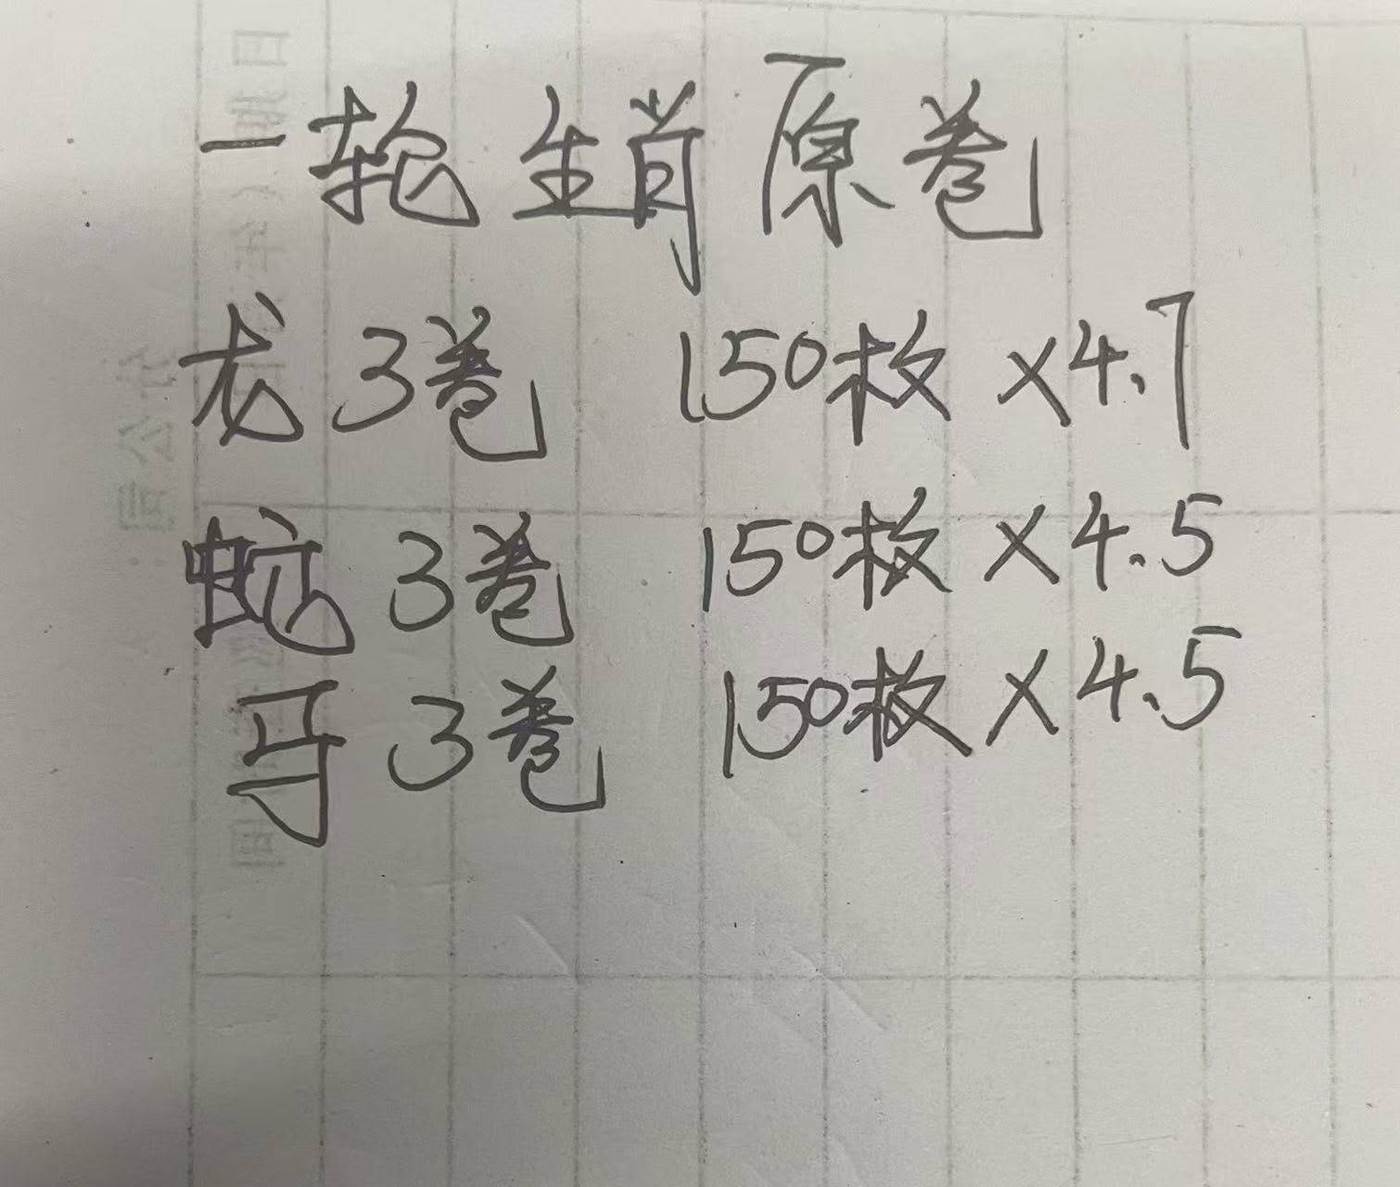 一轮生肖原卷
龙3卷 150枚×4.7
蛇3卷 150枚×4.5
马3卷 150枚×4.5